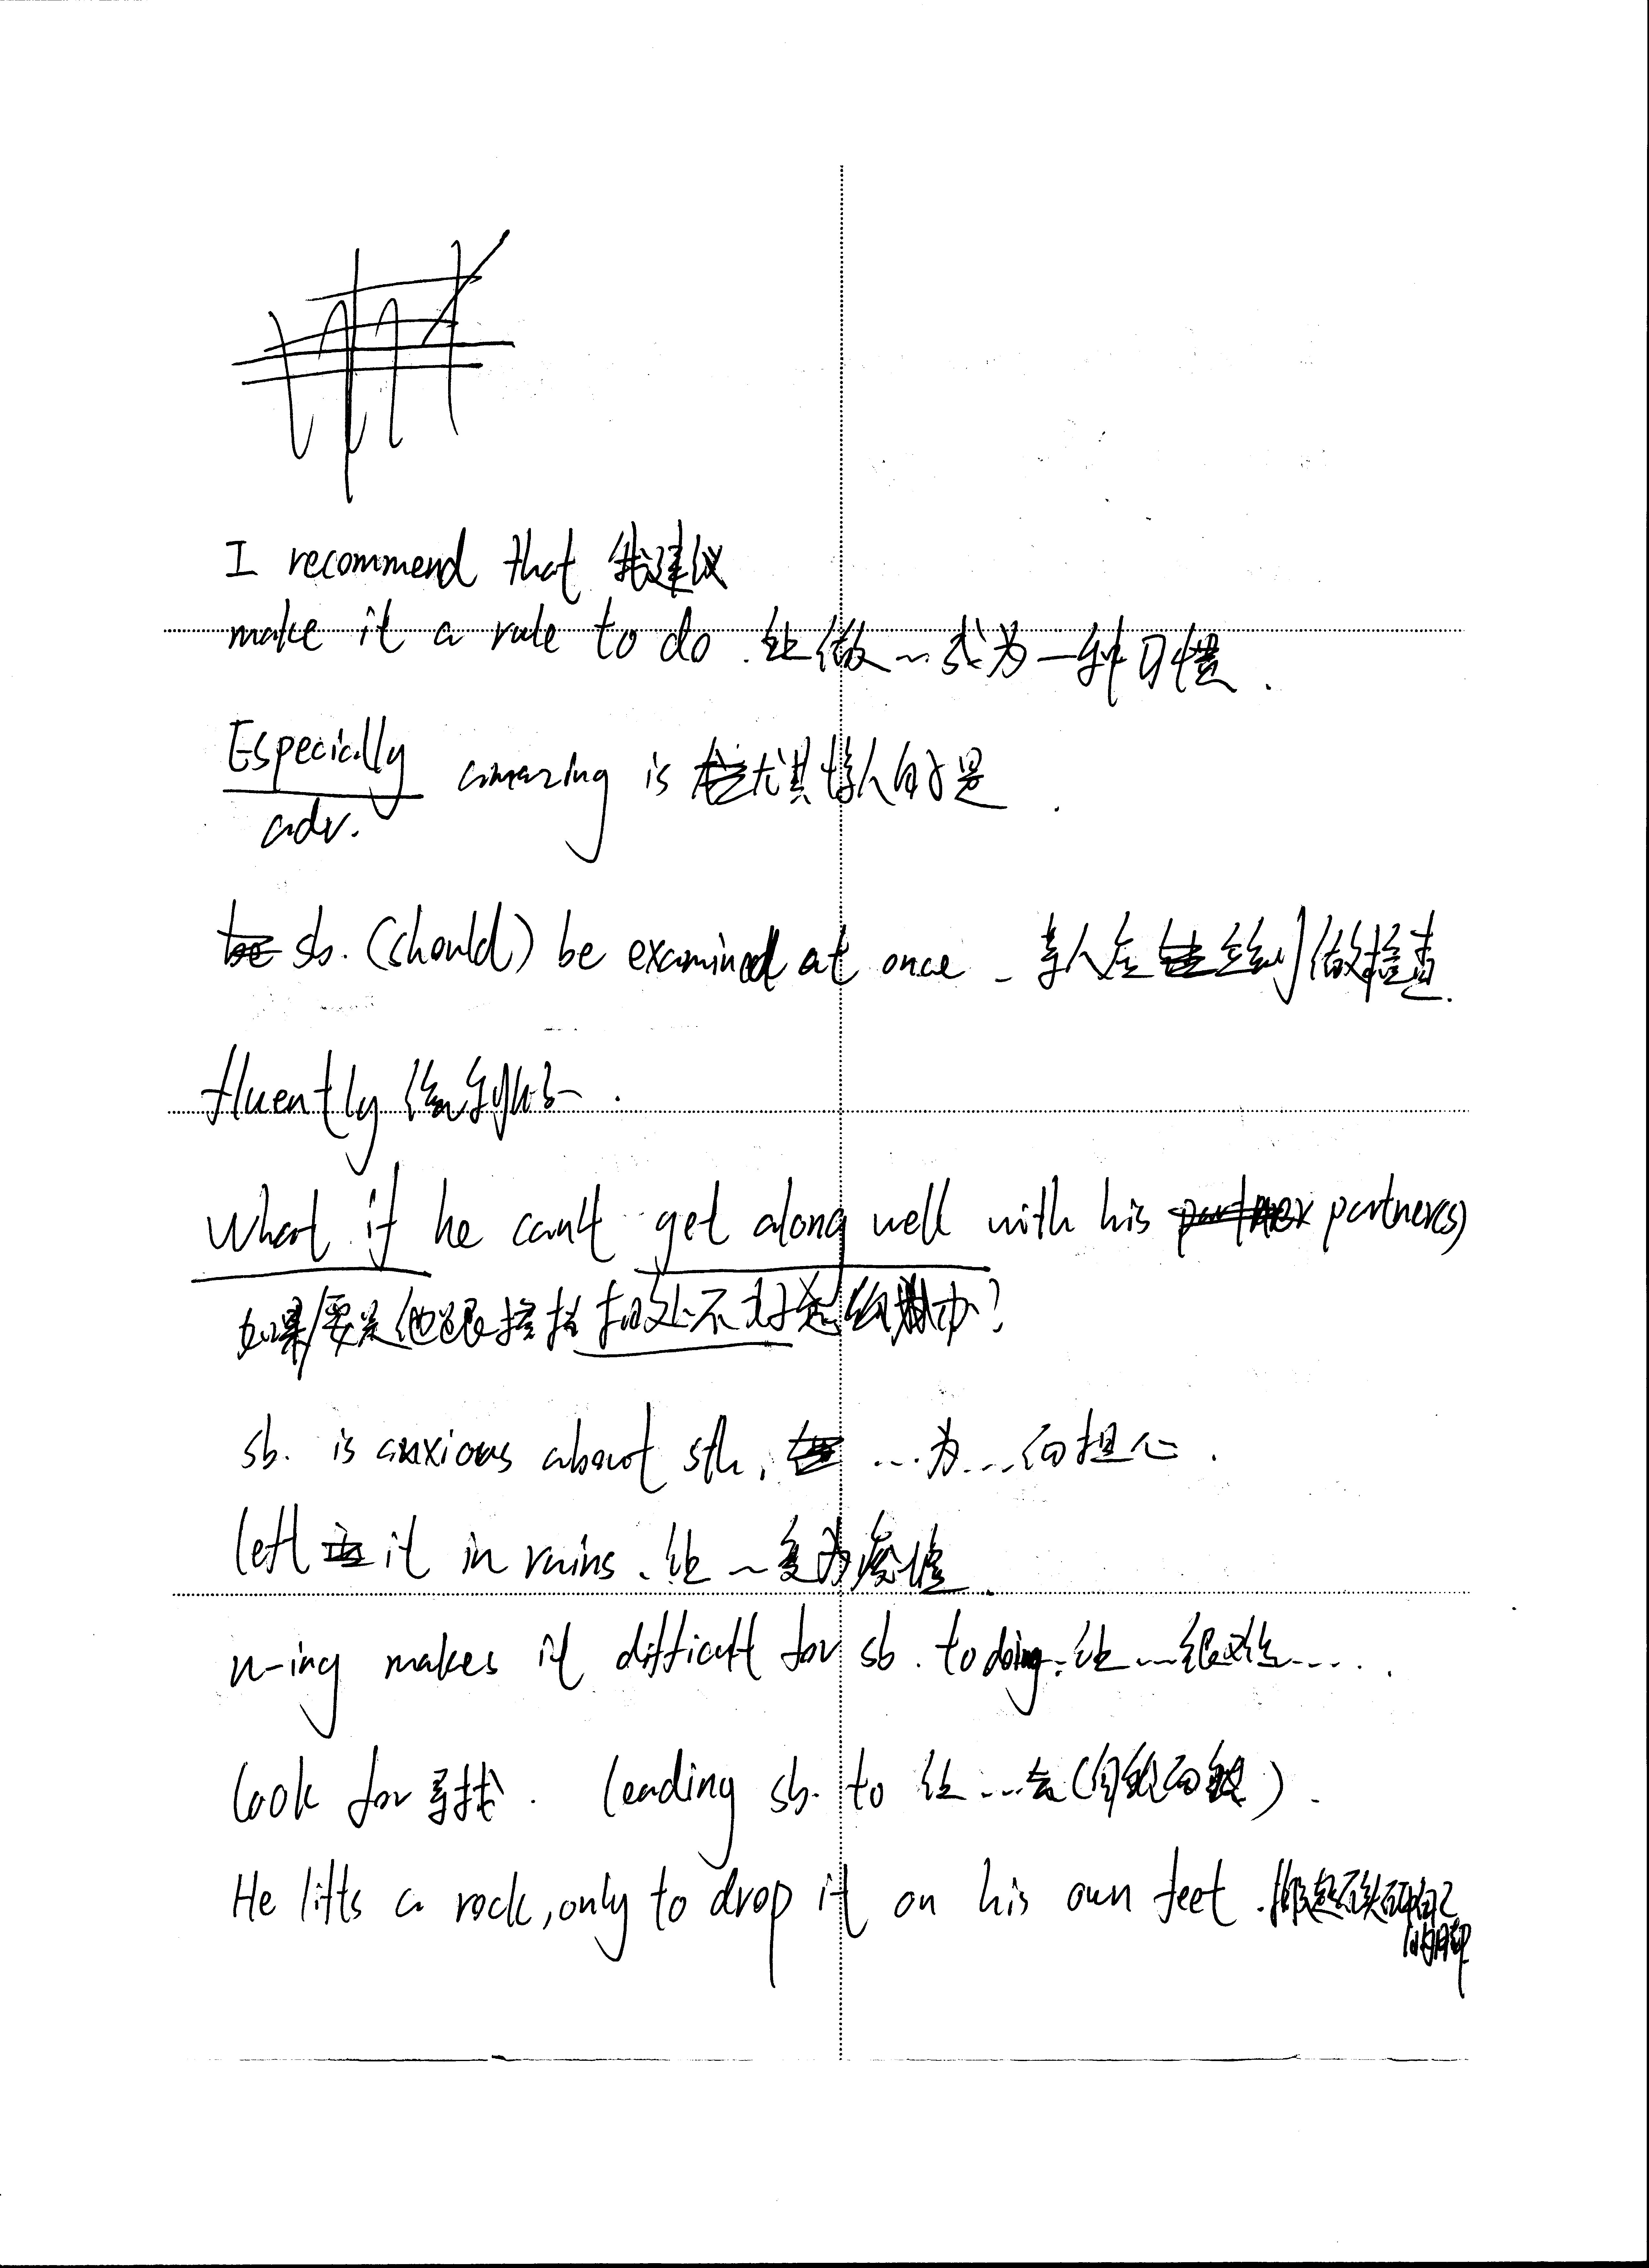 I recommend that 我建议
make it a rule to do. 让做~成为一种习惯.
Especially amazing is 尤其惊人的是.
adv.
sb. (should) be examined at once 去做检查.
fluently
What if he can't get along well with his partner(s)
如果/要是他跟搭档相处不好怎么办?
sb. is anxious about sth. ...为...而担心.
left it in ruins. 让~变为废墟.
v-ing makes it difficult for sb. to doing. 让...很难....
look for 寻找. leading sb. to 让...去
He lifts a rock, only to drop it on his own feet. 搬起石头砸自己
的脚